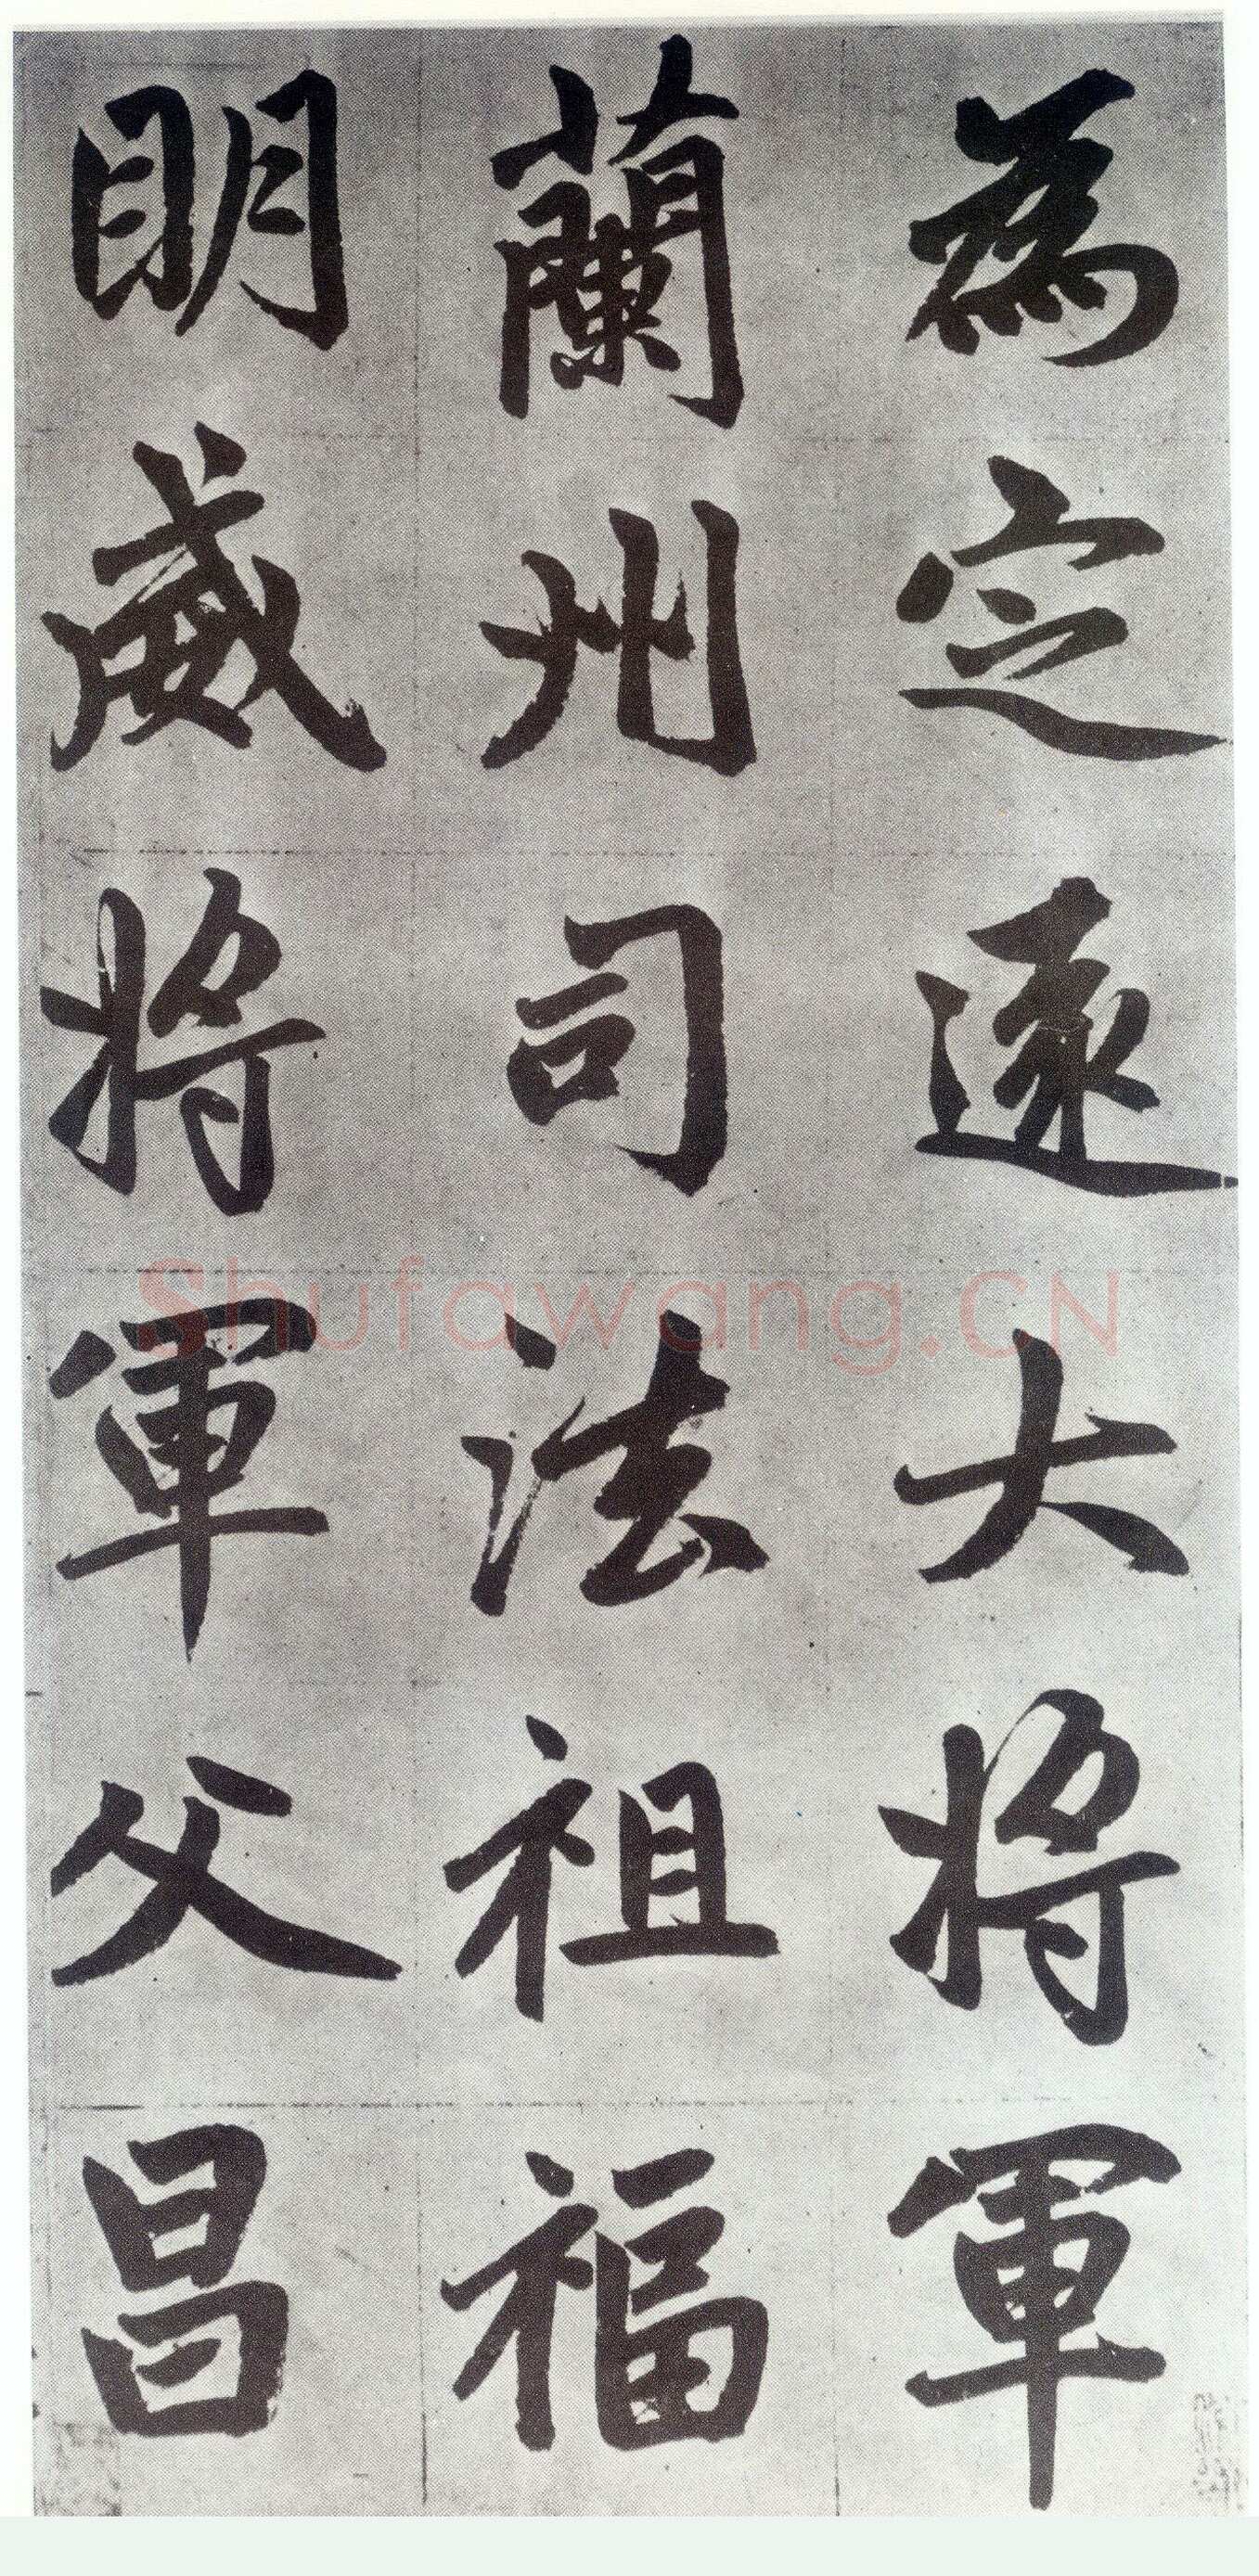 為定遠大將軍
蘭州司法祖福
明威將軍父昌
Shufawang.CN